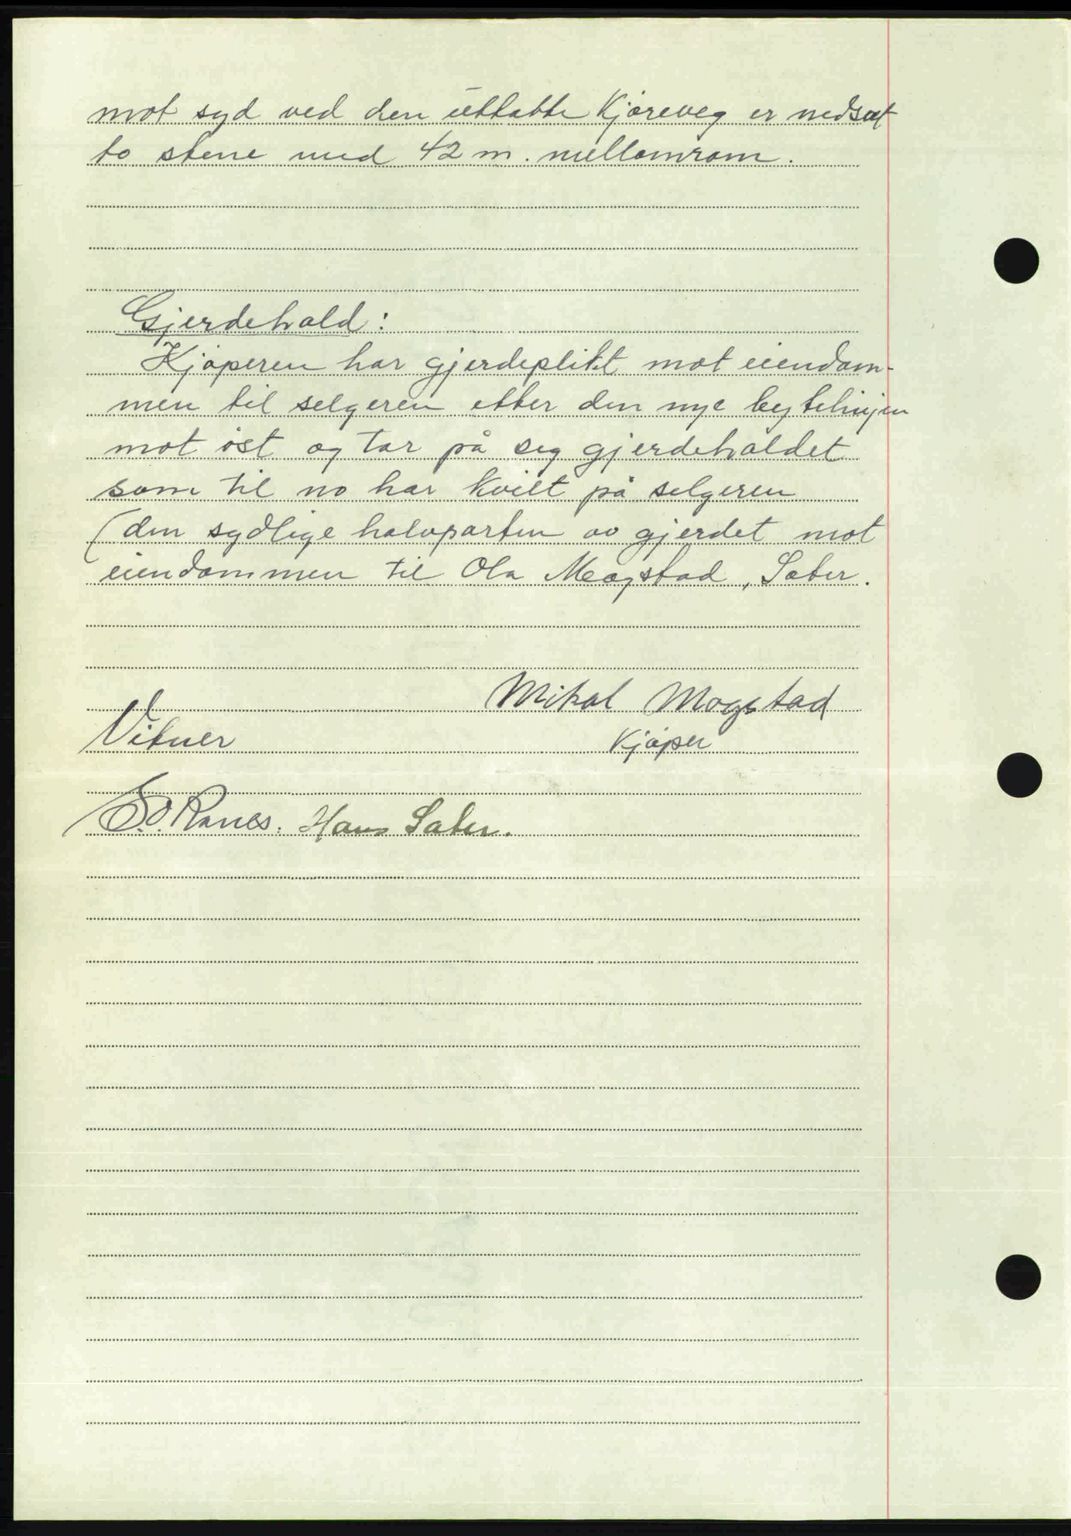 mot syd ved den uttatte Kjøreveg er nedsat
to stene med 42 m. mellomrom.
Gjerdehald:
Kjøperen har gjerdeplikt mot eiendom-
men til selgeren etter den nye bytelinjen
mot øst og tar på seg gjerdehaldet
som til no har kvilt på selgeren
(den sydlige halvparten av gjerdet mot
eiendommen til Ola Mogstad, Sæter.
Mikal Mogstad
Vitner Kjøper
Ranes. Hans Sæter.